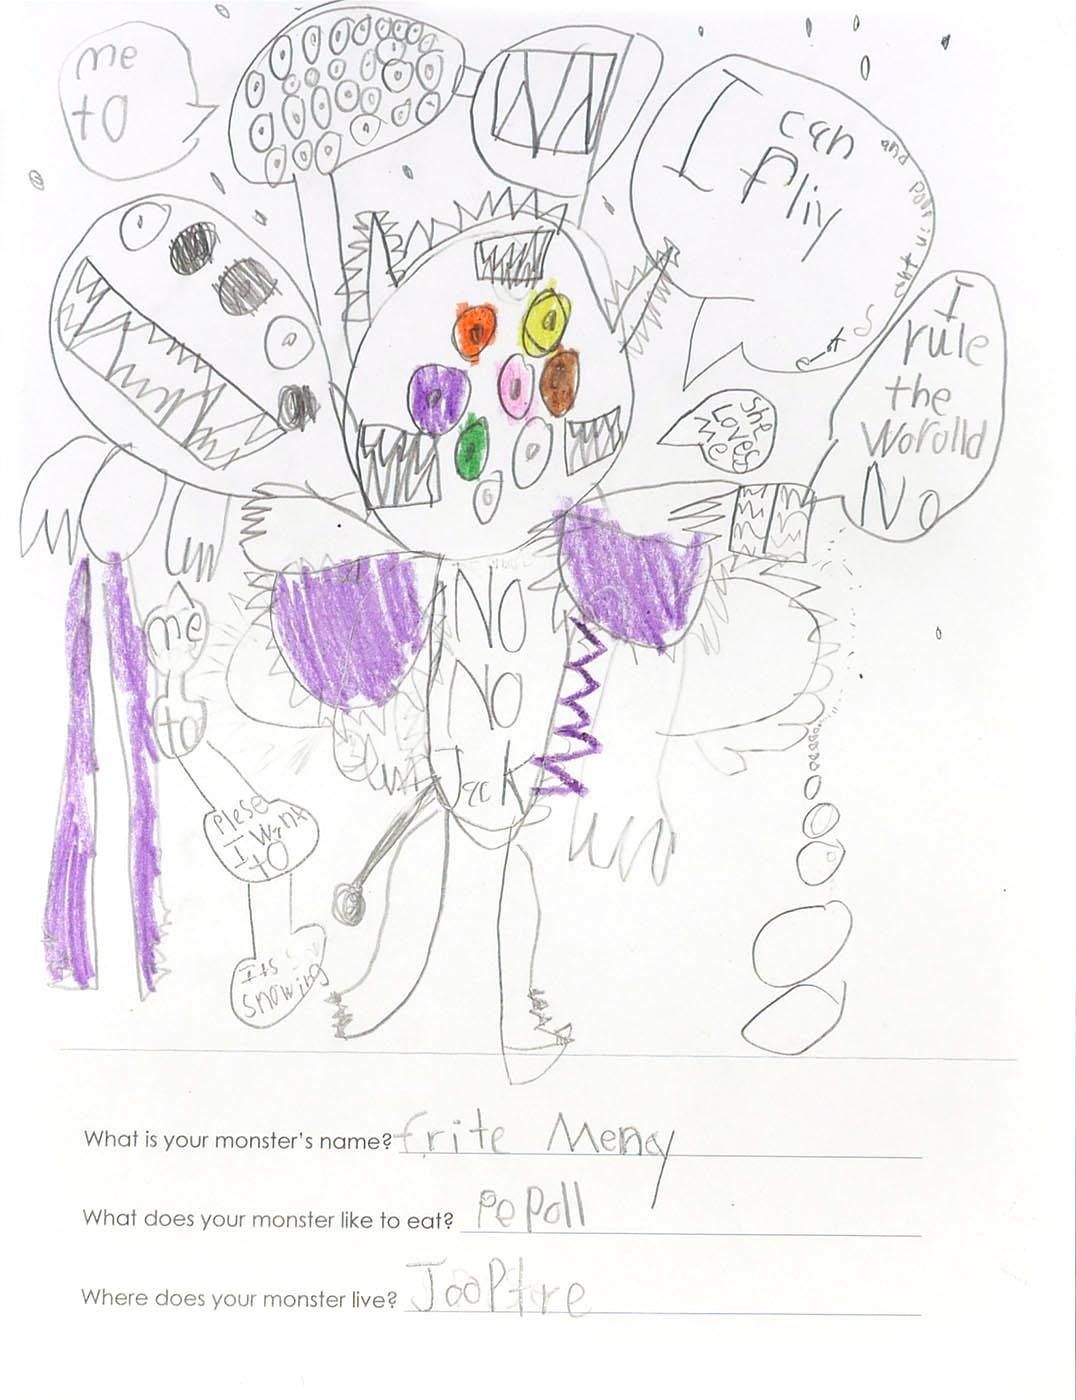 me
to
I can
fliy
and
cant
its
I
rule
the
worolld
No
She
Loves
Me
NO
NO
Jack
me
to
Plese
I want
to
Its
snowing
What is your monster's name? frite Mency
What does your monster like to eat? PePoll
Where does your monster live? JooPtre